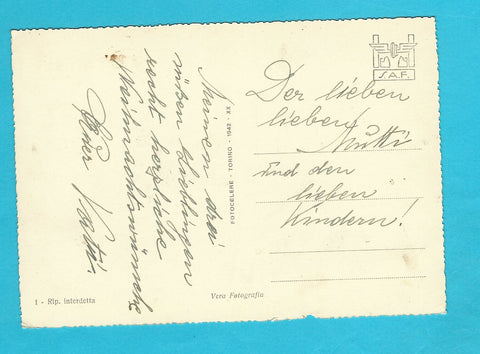 Meinen drei
süßen Lieblingen
recht herzliche
Weihnachtswünsche
Euer Vati.
FOTOCELERE - TORINO - 1942 - XX
S.A.F.
Der lieben
lieben Mutti
und den
lieben
Kindern!
1 - Rip. interdetta
Vera Fotografia